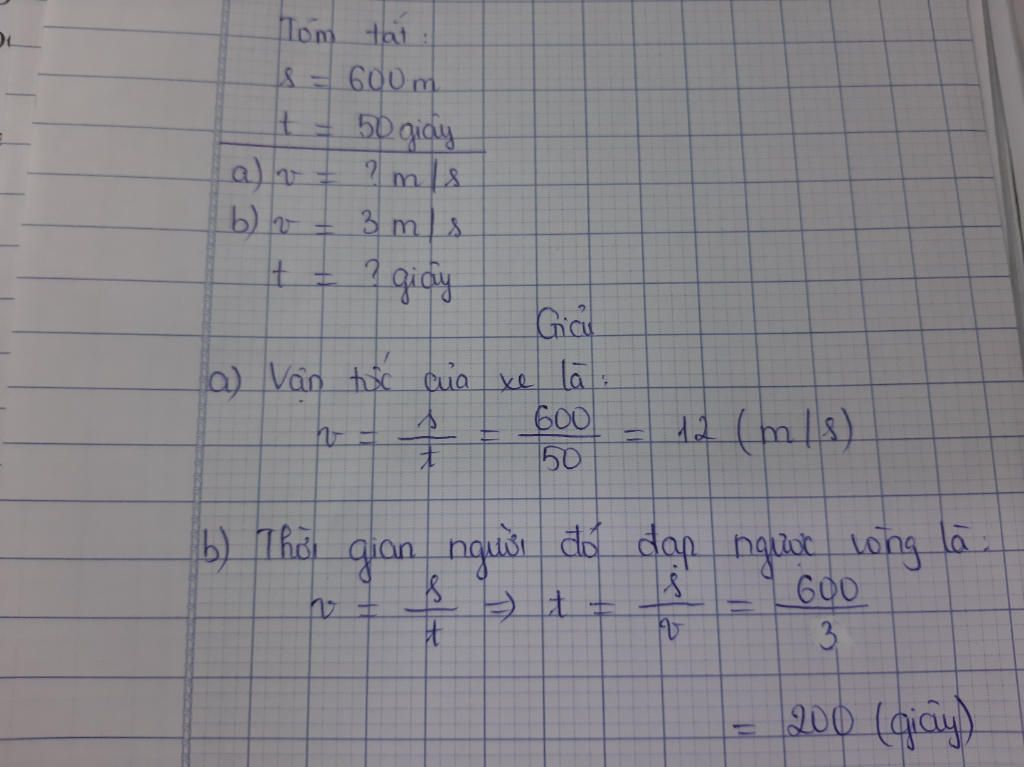 Tóm tắt:
s = 600m
t = 50 giây
a) v = ? m/s
b) v = 3 m/s
t = ? giây
Giải
a) Vận tốc của xe là:
v = s/t = 600/50 = 12 (m/s)
b) Thời gian người đó đạp ngược vòng là:
v = s/t => t = s/v = 600/3
= 200 (giây)